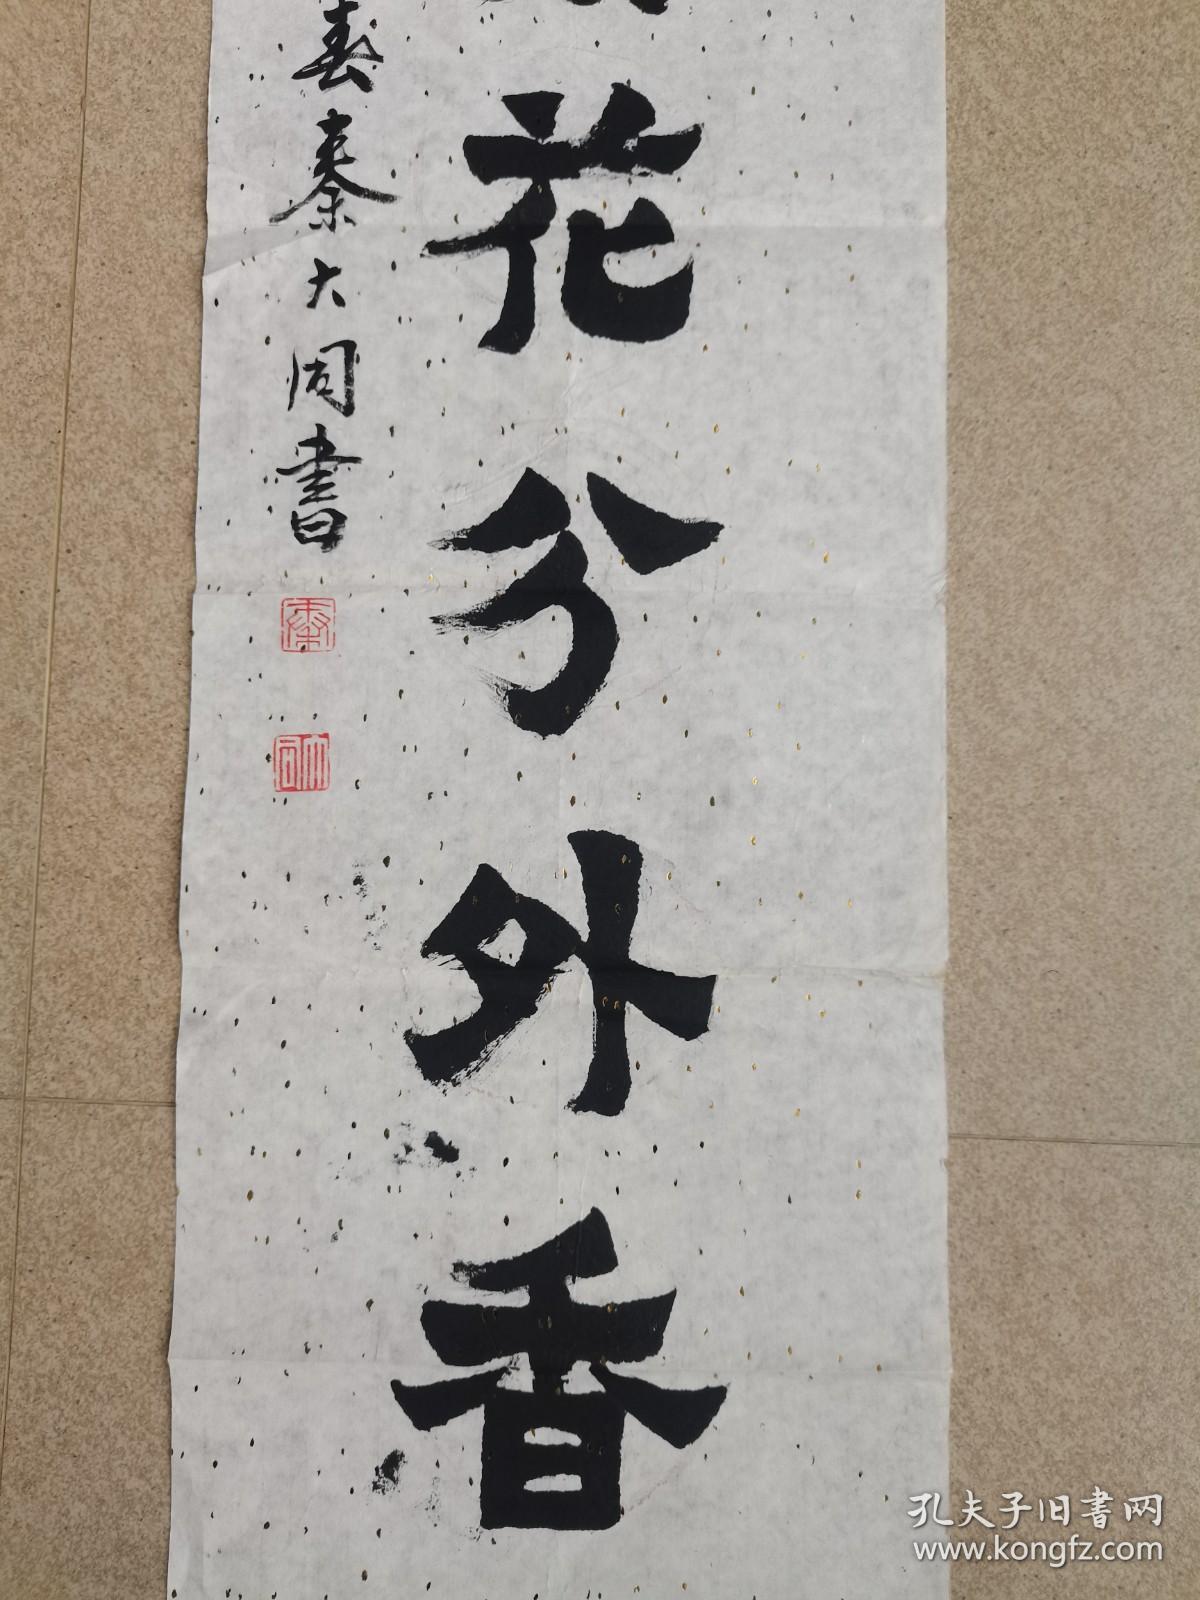 花分外香
春秦大同書
秦
大同
孔夫子旧书网
www.kongfz.com